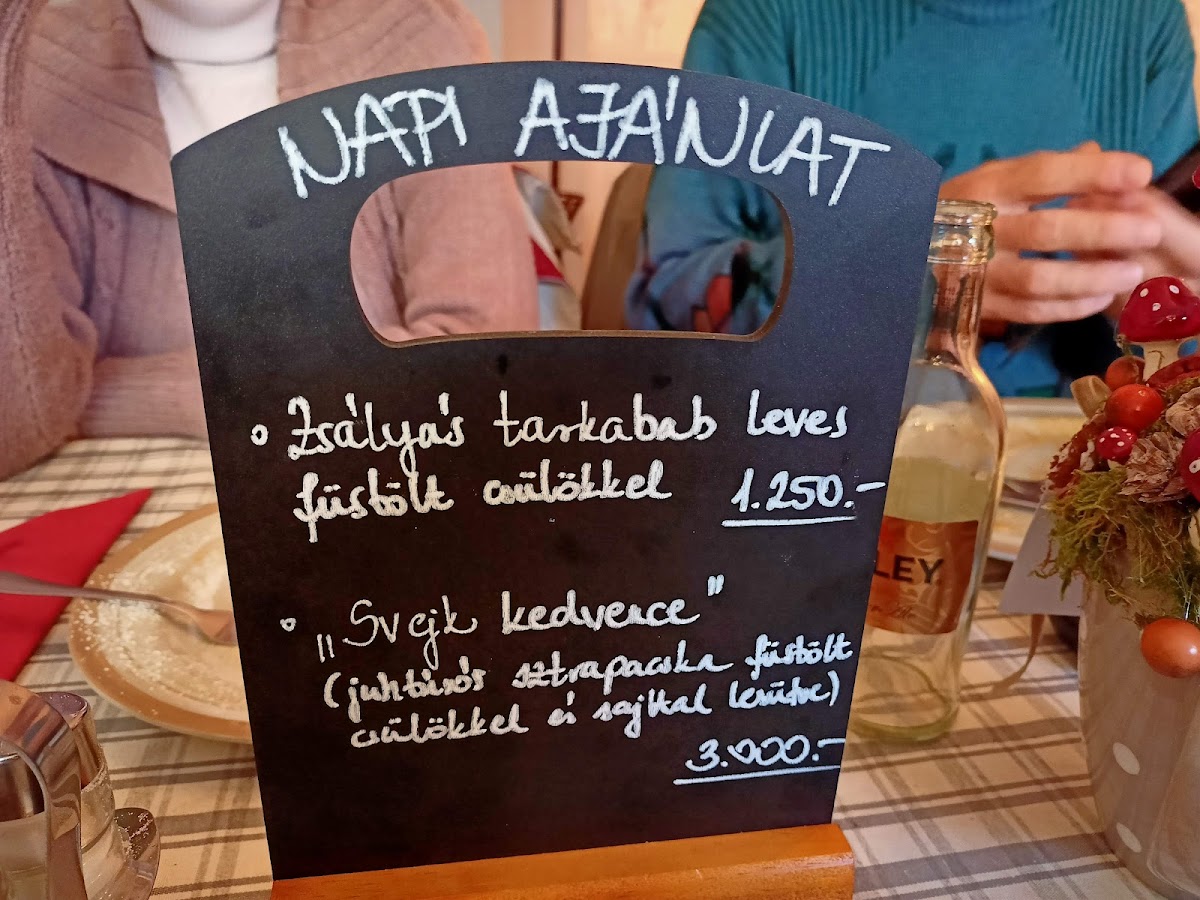 NAPI AJÁNLAT
Zsályás tarkabab leves
füstölt csülökkel 1.250.-
„Svejk kedvence"
(juhtúrós sztrapacska füstölt
csülökkel és sajttal lesütve)
3.000.-
LEY